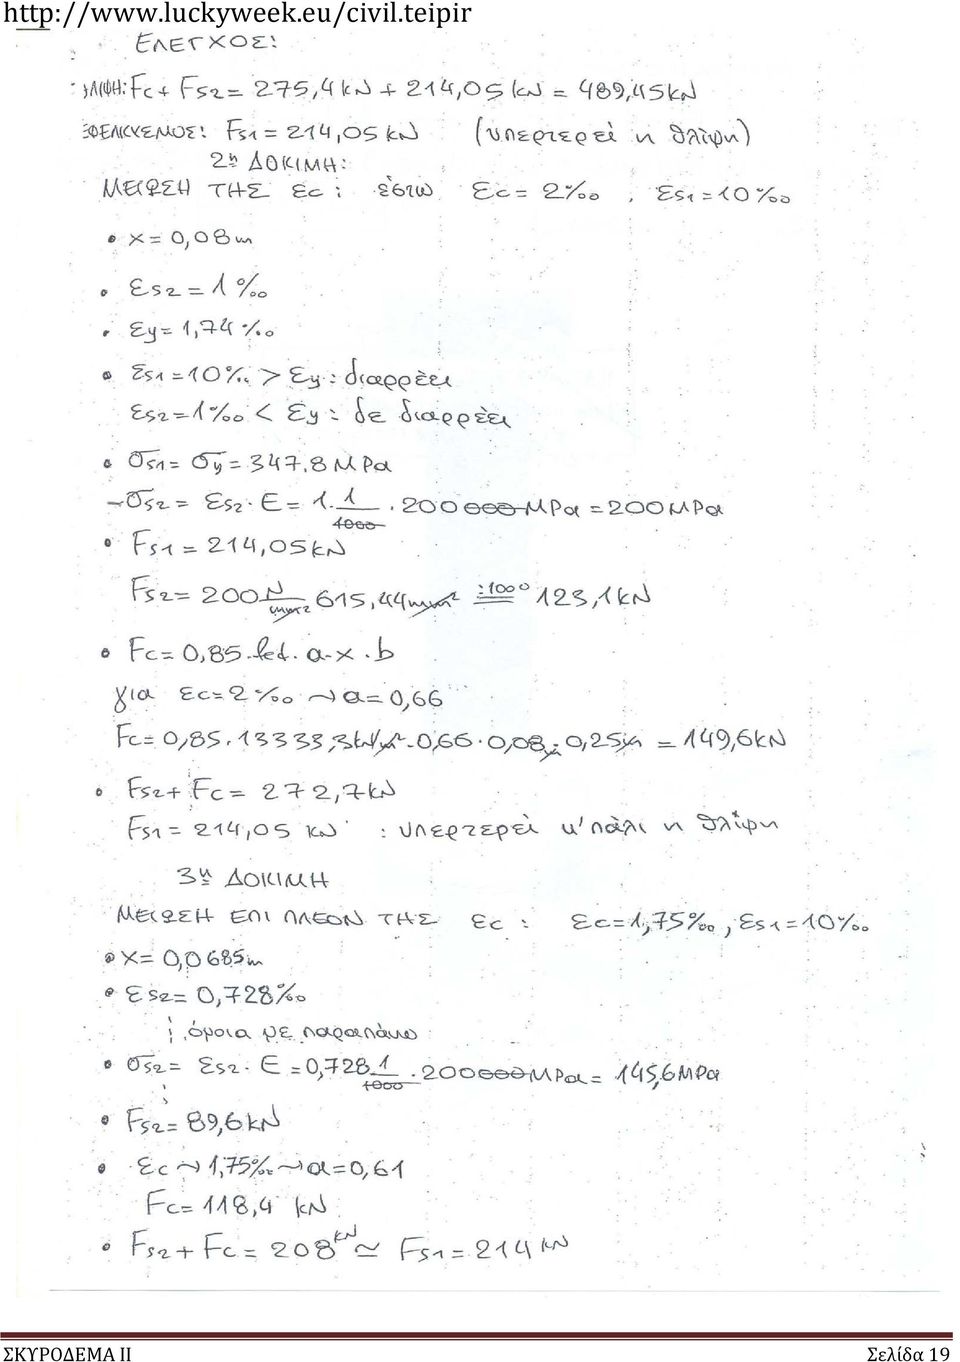 http://www.luckyweek.eu/civil.teipir
ΕΛΕΓΧΟΣ:
ΛΙΨΗ: Fc + Fs2 = 275,4 kN + 214,05 kN = 489,45 kN
ΕΦΕΛΚΥΣΜΟΣ: Fs1 = 214,05 kN (υπερτερεί η θλίψη)
2η ΔΟΚΙΜΗ:
ΜΕΙΩΣΗ ΤΗΣ εc : έστω εc = 2‰ , εs1 = 10‰
• x = 0,08m
• εs2 = 1‰
• εy = 1,74‰
• εs1 = 10‰ > εy : διαρρέει
εs2 = 1‰ < εy : δε διαρρέει
• σs1 = σy = 347.8 MPa
- σs2 = εs2 · E = 1 · 1/1000 · 200000 MPa = 200 MPa
• Fs1 = 214,05 kN
Fs2 = 200 N/mm2 615,44 mm2 =:1000= 123,1 kN
• Fc = 0,85 · fcd · a · x · b
για εc = 2‰ ~> a = 0,66
Fc = 0,85 · 13333,3 kN/m2 · 0,66 · 0,08m · 0,25m = 149,6 kN
• Fs2 + Fc = 272,7 kN
Fs1 = 214,05 kN : υπερτερεί κ' πάλι η θλίψη
3η ΔΟΚΙΜΗ
ΜΕΙΩΣΗ ΕΠΙ ΠΛΕΟΝ ΤΗΣ εc : εc = 1,75‰ , εs1 = 10‰
• x = 0,0685m
• εs2 = 0,728‰
⋮ όμοια με παραπάνω
• σs2 = εs2 · E = 0,728 1/1000 · 200000 MPa = 145,6 MPa
• Fs2 = 89,6 kN
• εc ~> 1,75‰ ~> a = 0,61
Fc = 118,4 kN
• Fs2 + Fc = 208 kN ≃ Fs1 = 214 kN
ΣΚΥΡΟΔΕΜΑ ΙΙ Σελίδα 19